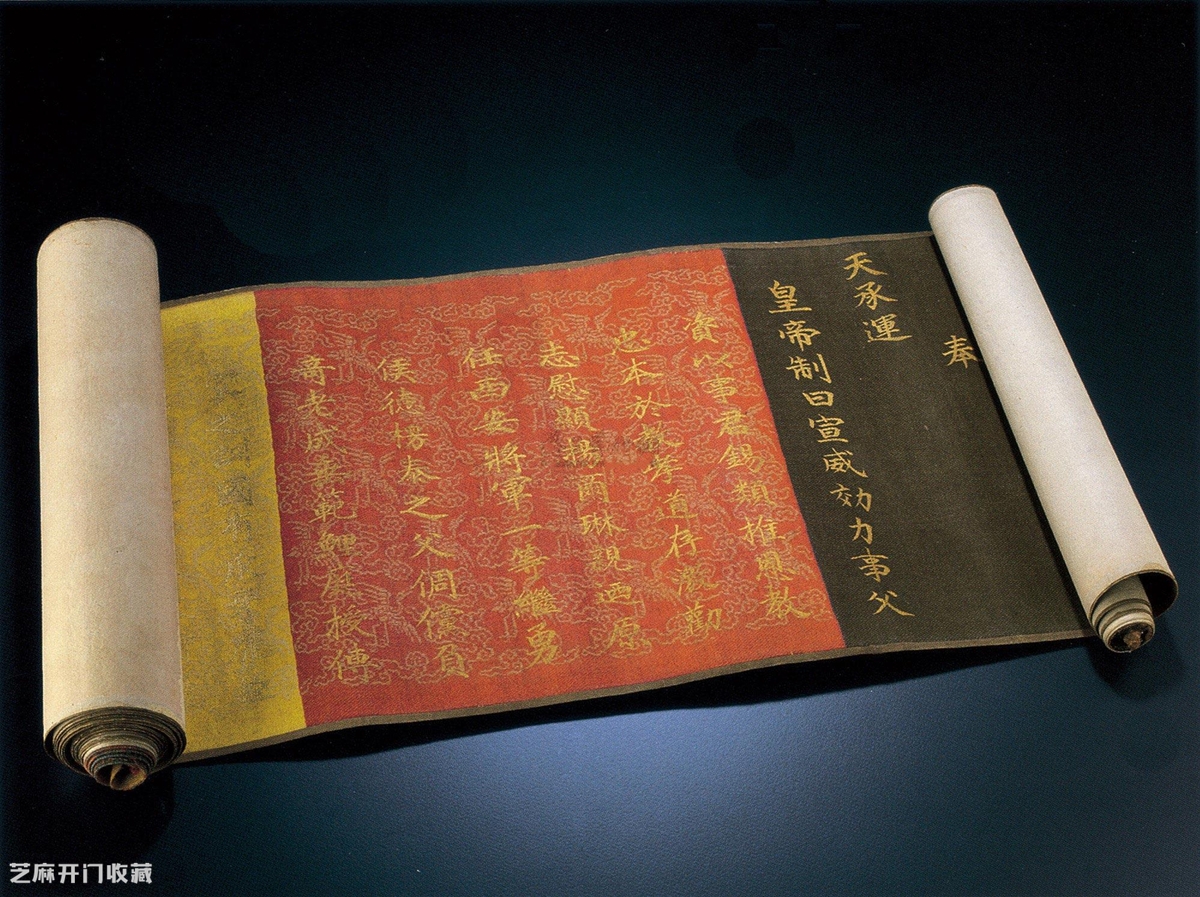 奉
天承運
皇帝制曰宣威効力事父
資以事君錫類推恩教
忠本於教孝道存激勸
志慰顯揚爾琳親迺原
任西安將軍一等繼勇
侯德楞泰之父倜儻負
奇老成垂範鯉庭授傳
芝麻开门收藏